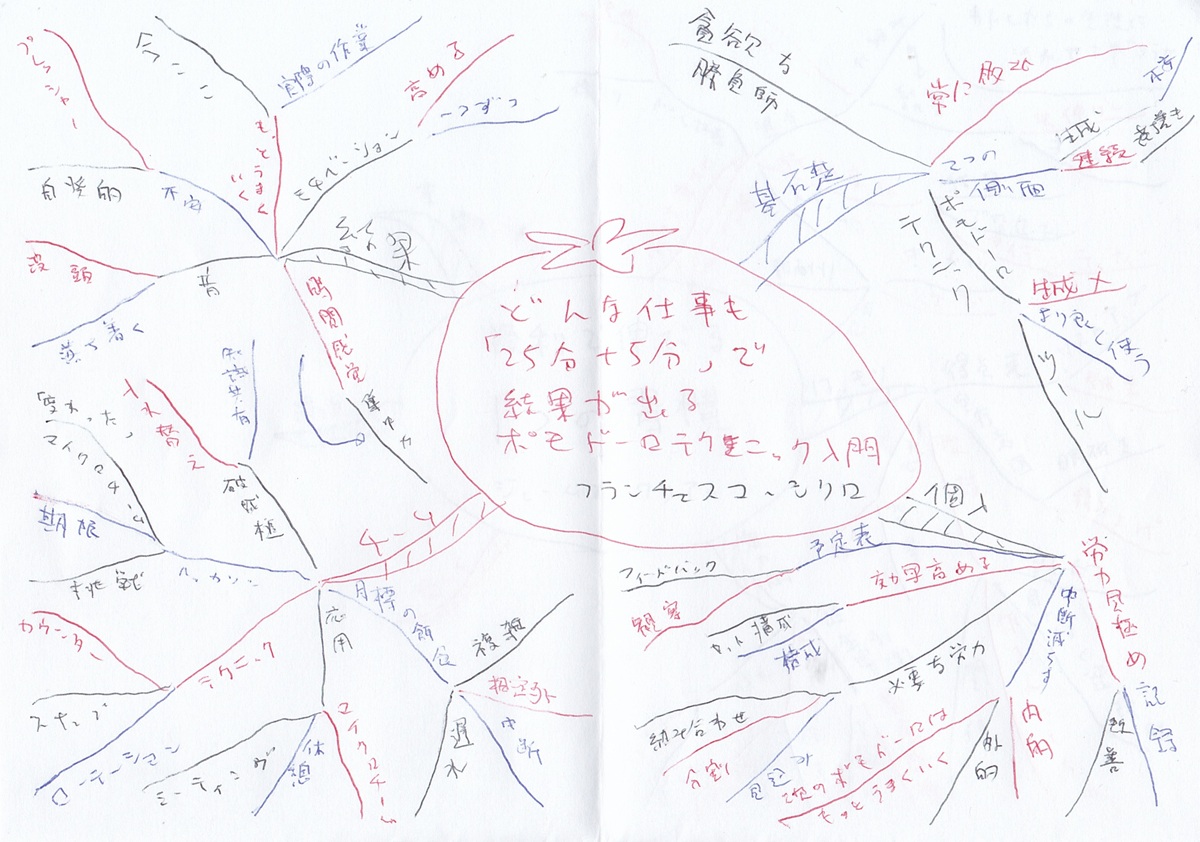 どんな仕事も
「25分+5分」で
結果が出る
ポモドーロテクニック入門
フランチェスコ・シリロ
基石整
貪欲な
勝負師
常に
2つの
側面
達成
継続
ポモドーロ
テクニック
より良く使う
ツール
個人
予定表
フィードバック
観察
効果高める
セット構成
構成
必要な労力
組み合わせ
分割
見込み
中断減らす
次のポモドーロは
もっとうまくいく
外的
内的
労力見極め
改善
記録
チーム
目標の
複雑
想定外
中断
遅れ
応用
マイクロチーム
休憩
ミーティング
テクニック
カウンター
スナップ
ローテーション
挑戦
期限
変わった
マイクロチーム
入れ替え
知識共有
結果
時間感覚
集中力
音
没頭
落ち着く
不安
プレッシャー
自発的
もっとうまく
いく
今ここ
実際の作業
モチベーション
高める
一つずつ